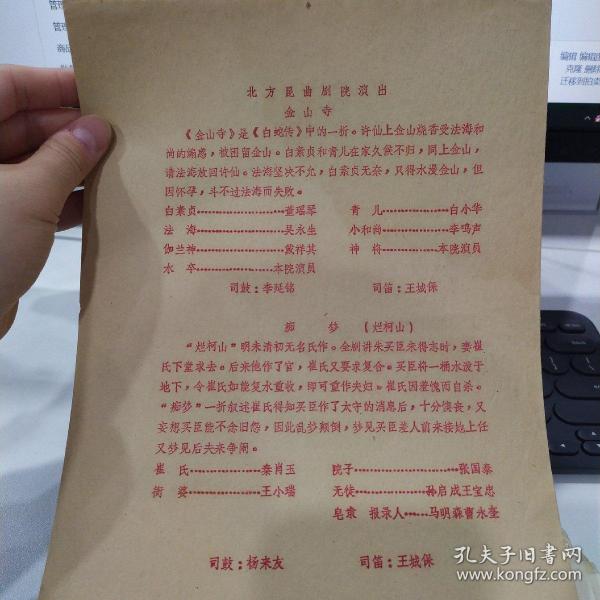 北方昆曲剧院演出
金山寺
《金山寺》是《白蛇传》中的一折。许仙上金山烧香受法海和
尚的蛊惑，被困留金山。白素贞和青儿在家久候不归，同上金山，
请法海放回许仙。法海坚决不允，白素贞无奈，只得水漫金山，但
因怀孕，斗不过法海而失败。
白素贞……………………董瑶琴 青 儿………………白小华
法 海……………………吴永生 小和尚………………李鸣声
伽兰神……………………戴祥其 神 将………………本院演员
水 卒…………………本院演员
司鼓：李延铭 司笛：王城保
痴 梦 （烂柯山）
“烂柯山”明末清初无名氏作。全剧讲朱买臣未得志时，妻崔
氏下堂求去。后来他作了官，崔氏又要求复合。买臣将一桶水泼于
地下，令崔氏如能复水重收，即可重作夫妇。崔氏因羞愧而自杀。
“痴梦”一折叙述崔氏得知买臣作了太守的消息后，十分懊丧，又
妄想买臣能不念旧怨，因此乱梦颠倒，梦见买臣差人前来接她上任
又梦见后夫来争闹。
崔 氏………………秦肖玉 院子………………………张国泰
衙 婆………………王小瑞 无徒………………孙启成王宝忠
皂隶 报录人……马明森曹永奎
司鼓：杨来友 司笛：王城保
孔夫子旧书网
www.kongfz.com
管理
商品
编辑 编辑图
克隆 删除
迁移到拍卖